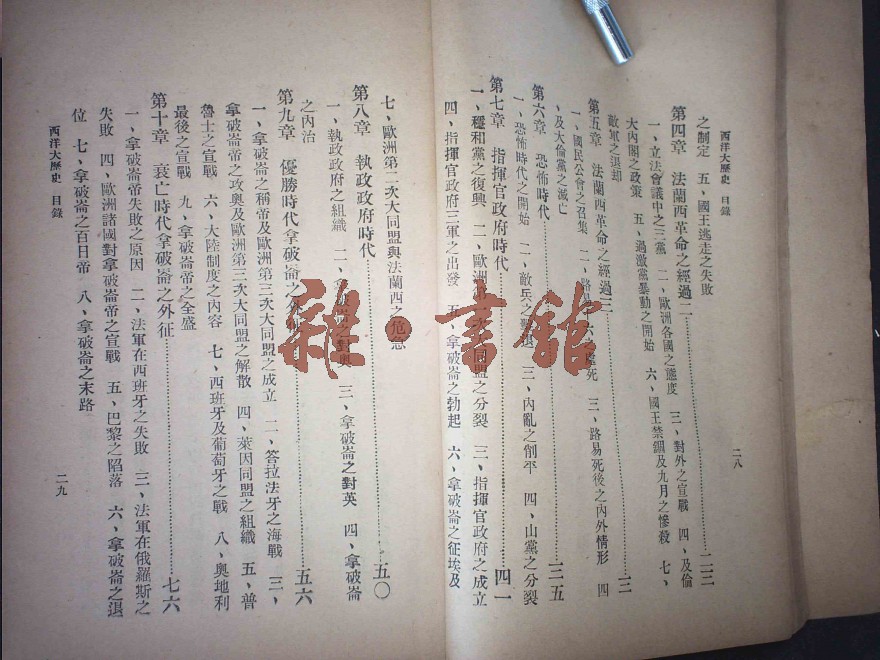 西洋大歷史 目錄
二八
之制定 五、國王逃走之失敗
第四章 法蘭西革命之經過二
一、立法會議中之三黨 二、歐洲各國之態度 三、對外之宣戰 四、及倫
大內閣之政策 五、過激黨暴動之開始 六、國王禁錮及九月之慘殺 七、
敵軍之退却
第五章 法蘭西革命之經過三
一、國民公會之召集 二、路易 處死 三、路易死後之內外情形 四
、及大倫黨之滅亡
第六章 恐怖時代
一、恐怖時代之開始 二、敵兵之 三、內亂之削平 四、山黨之分裂
第七章 指揮官政府時代 四一
一、穩和黨之復興 二、歐洲第一次大同盟之分裂 三、指揮官政府之成立
四、指揮官政府三軍之出發 五、拿破崙之勃起 六、拿破崙之征埃及
七、歐洲第二次大同盟與法蘭西之危急
第八章 執政政府時代 五〇
一、執政政府之組織 二、拿破崙之對奧 三、拿破崙之對英 四、拿破崙
之內治
第九章 優勝時代拿破崙之外征 五六
一、拿破崙之稱帝及歐洲第三次大同盟之成立 二、答拉法牙之海戰 三、
拿破崙帝之攻奧及歐洲第三次大同盟之解散 四、萊因同盟之組織 五、普
魯士之宣戰 六、大陸制度之內容 七、西班牙及葡萄牙之戰 八、奧地利
最後之宣戰 九、拿破崙帝之全盛
第十章 衰亡時代拿破崙之外征 七六
一、拿破崙帝失敗之原因 二、法軍在西班牙之失敗 三、法軍在俄羅斯之
失敗 四、歐洲諸國對拿破崙帝之宣戰 五、巴黎之陷落 六、拿破崙之退
位 七、拿破崙之百日帝 八、拿破崙之末路
西洋大歷史 目錄
二九
雜·書館